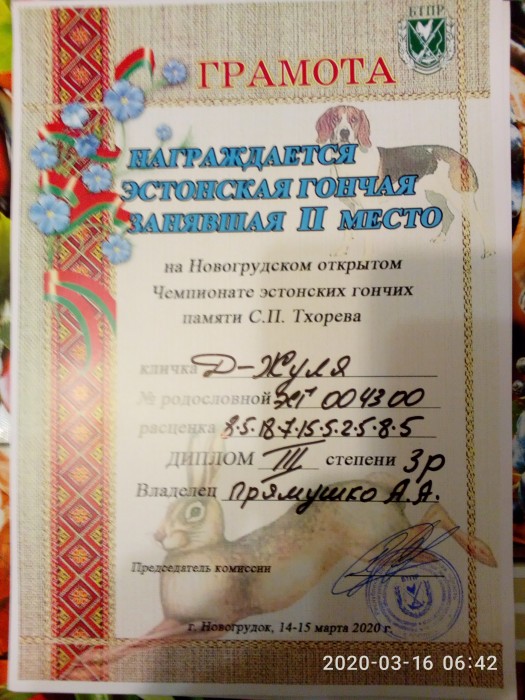 БТПР
ГРАМОТА
НАГРАЖДАЕТСЯ
ЭСТОНСКАЯ ГОНЧАЯ
ЗАНЯВШАЯ II МЕСТО
на Новогрудском открытом
Чемпионате эстонских гончих
памяти С.П. Тхорева
кличка Д-Жуля
№ родословной 004300
расценка 8.5.18.7.15.5.2.5.8.5
ДИПЛОМ III степени 3р
Владелец Прямушко А.А.
Председатель комиссии
БТПР
г. Новогрудок, 14-15 марта 2020 г.
2020-03-16 06:42